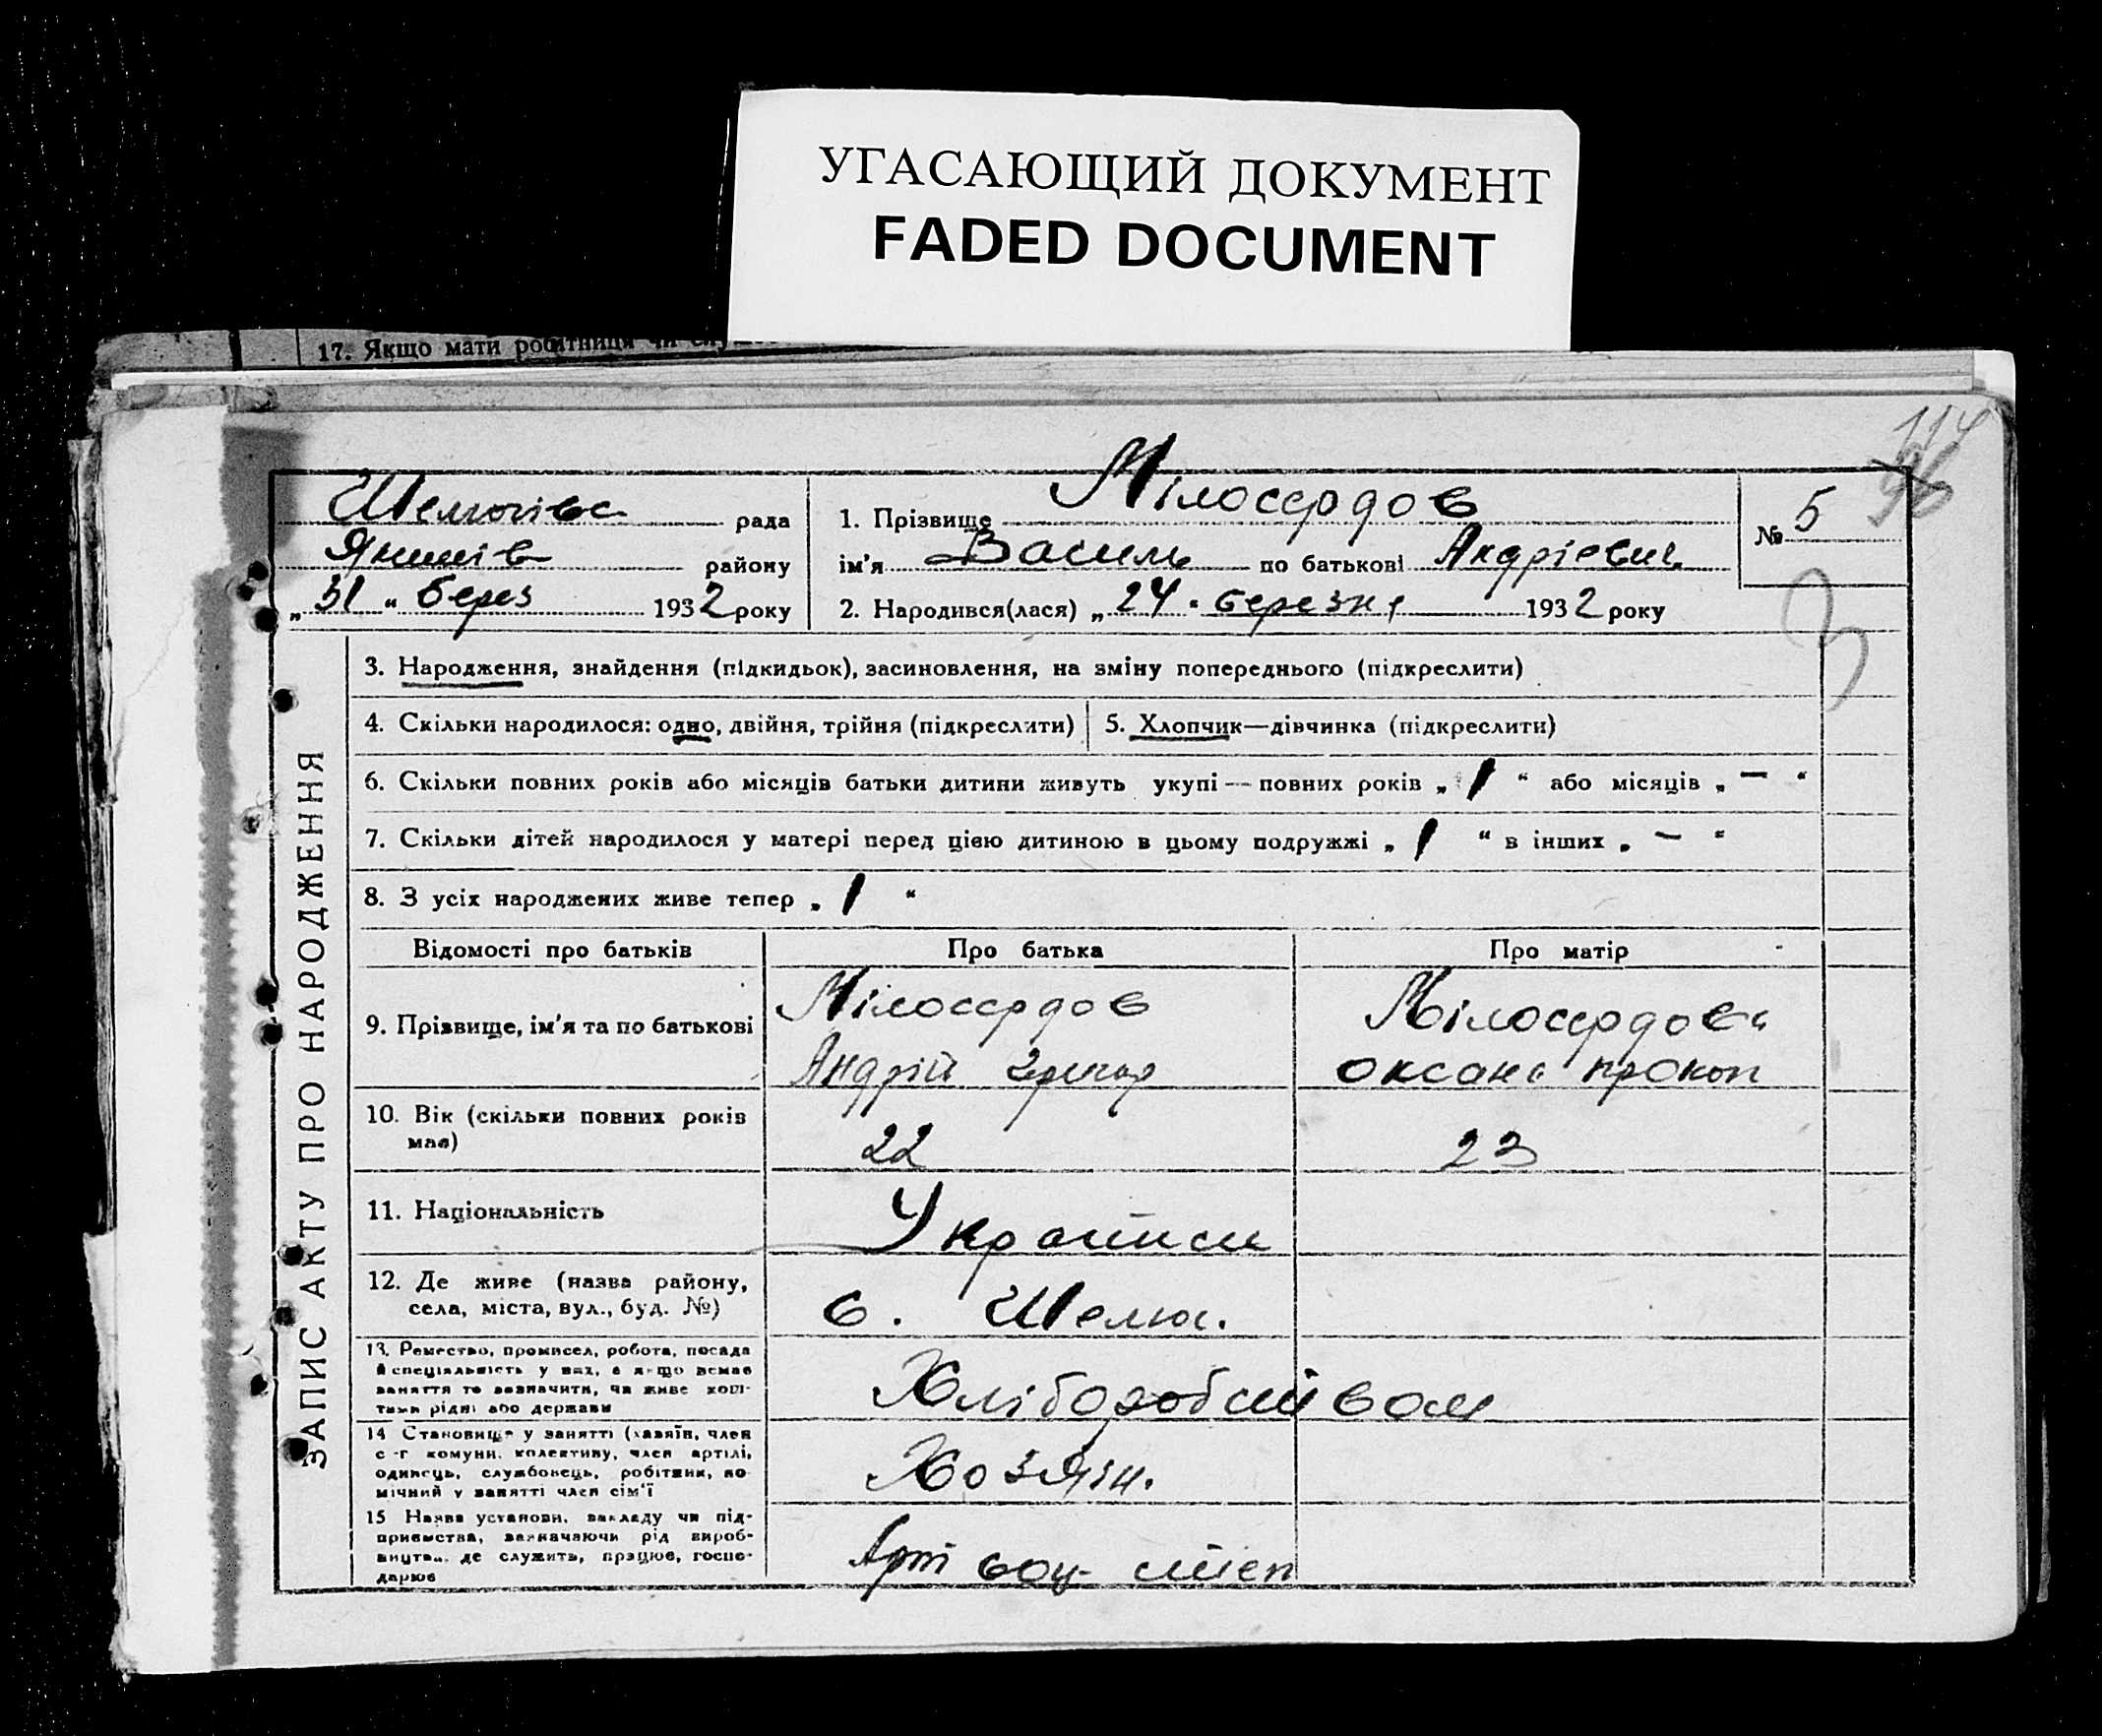 УГАСАЮЩИЙ ДОКУМЕНТ
FADED DOCUMENT
17. Якщо мати робітниця чи
114
96
рада
району
„ 31 “ берез 1932 року
1. Прізвище Мілосердов
ім'я Василь по батькові Андрієвич
2. Народився(лася) „ 24 “ березня 1932 року
№ 5
ЗАПИС АКТУ ПРО НАРОДЖЕННЯ
3. Народження, знайдення (підкидьок), засиновлення, на зміну попереднього (підкреслити)
4. Скільки народилося: одно, двійня, трійня (підкреслити)
5. Хлопчик—дівчинка (підкреслити)
6. Скільки повних років або місяців батьки дитини живуть укупі — повних років „ 1 “ або місяців „ — “
7. Скільки дітей народилося у матері перед цією дитиною в цьому подружжі „ 1 “ в інших „ — “
8. З усіх народжених живе тепер „ 1 “
Відомості про батьків
Про батька
Про матір
9. Прізвище, ім'я та по батькові
Мілосердов
Андрій Григор
Мілосердова
Оксана Прокоп
10. Вік (скільки повних років
має)
22
23
11. Національність
Українси
12. Де живе (назва району,
села, міста, вул., буд. №)
с. Шелюг.
13. Ремество, промисел, робота, посада
й спеціяльність у них, а якщо немає
заняття то зазначити, чи живе кош-
тами рідні або держави
Хліборобс
14 Становище у занятті (хазяїн, член
с.-г комуни, колективу, член артілі,
одинець, службовець, робітник, по-
мічний у занятті член сім'ї
Хозяїн.
15 Назва установи, закладу чи під-
приємства, зазначаючи рід вироб-
ництва, де служить, працює, госпо-
дарює
Арт соц.